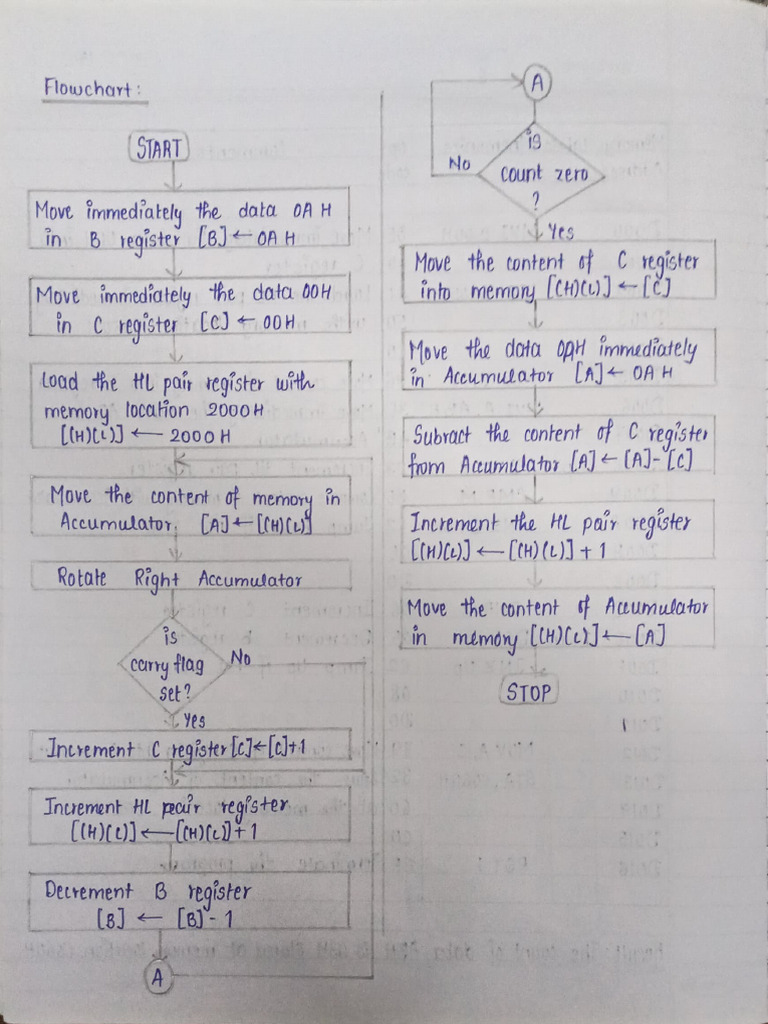 Flowchart:
START
Move immediately the data 0A H
in B register [B] ← 0A H
Move immediately the data 00H
in C register [C] ← 00H
Load the HL pair register with
memory location 2000 H
[(H)(L)] ← 2000 H
Move the content of memory in
Accumulator. [A] ← [(H)(L)]
Rotate Right Accumulator
is
carry flag
set?
No
Yes
Increment C register [C]←[C]+1
Increment HL pair register
[(H)(L)] ← [(H)(L)]+1
Decrement B register
[B] ← [B]-1
A
A
is
count zero
?
No
Yes
Move the content of C register
into memory [(H)(L)] ← [C]
Move the data 0AH immediately
in Accumulator [A] ← 0A H
Subract the content of C register
from Accumulator [A] ← [A]-[C]
Increment the HL pair register
[(H)(L)] ← [(H)(L)] + 1
Move the content of Accumulator
in memory [(H)(L)] ← [A]
STOP